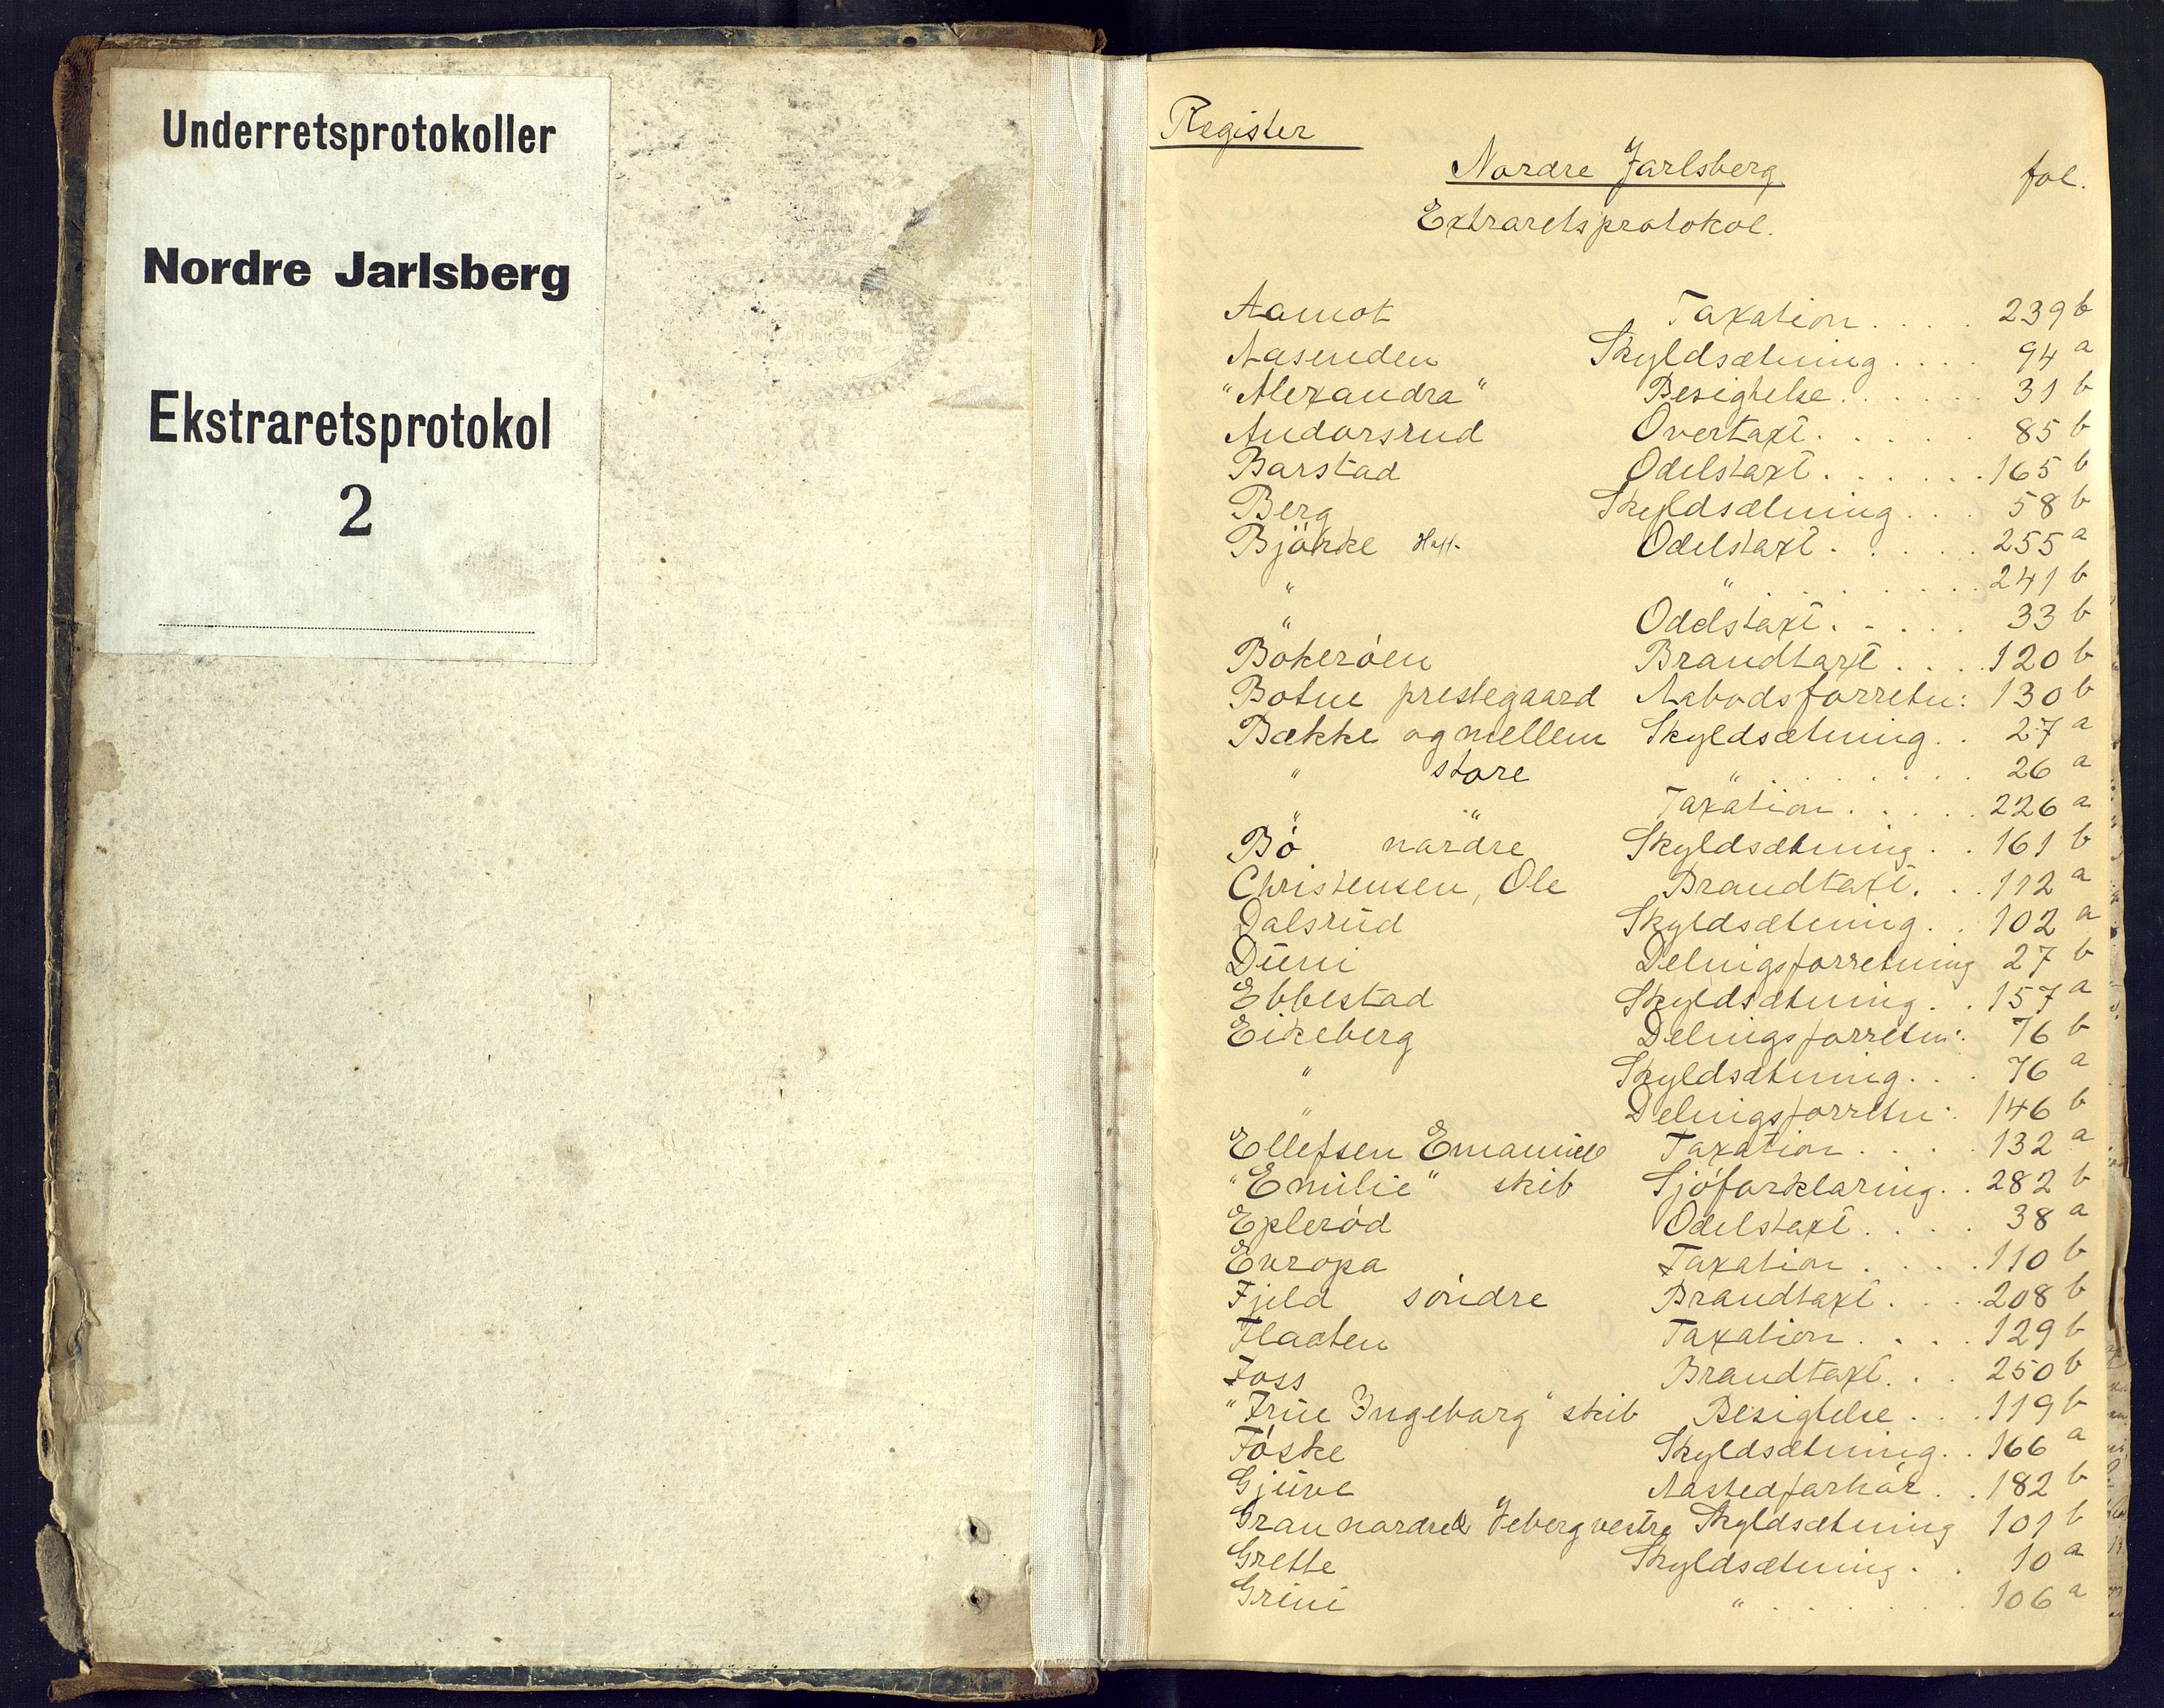 Underretsprotokoller
Nordre Jarlsberg
Ekstraretsprotokol
2
Register
Nordre Jarlsberg fol.
Extraretsprotokol.
Aamot Taxation . . . . 239 b
Aasenden Skyldsætning . . . . 94 a
"Alexandra" Besigtelse . . . . . 31 b
Andorsrud Overtaxt . . . . . 85 b
Barstad Odelstaxt . . . . . . 165 b
Berg Skyldsætning . . . 58 b
Björke Odelstaxt . . . . . 255 a
" " . . . . . . 241 b
" Odelstaxt . . . . . 33 b
Bökeröen Brandtaxt . . . . 120 b
Botne prestegaard Aabodsforretn: 130 b
Bække og mellem Skyldsætning . . 27 a
" store " . . . . . . 26 a
" " Taxation . . . . . 226 a
Bö nordre Skyldsætning . . 161 b
Christensen, Ole Brandtaxt . . . 112 a
Dalsrud Skyldsætning . . 102 a
Duni Delnigsforretning 27 b
Ebbestad Skyldsætning . . 157 a
Eikeberg Delnigsforretn: 76 b
" Skyldsætning . . . 76 a
" Delnigsforretn: 146 b
Ellefsen Emanuel Taxation . . . . 132 a
"Emilie" skib Sjöforklaring . . 282 b
Epleröd Odelstaxt . . . . 38 a
Europa Taxation . . . . 110 b
Fjeld söndre Brandtaxt . . . . 208 b
Flaaten Taxation . . . . 129 b
Foss Brandtaxt . . . 250 b
"Frue Ingeborg" skib Besigtelse . . . 119 b
Föske Skyldsætning . . 166 a
Gjuve Aastedforhör . . 182 b
Gran nordre & Jeberg vestre Skyldsætning 101 b
Grette Skyldsætning . . 10 a
Grini " . . . . . . 106 a